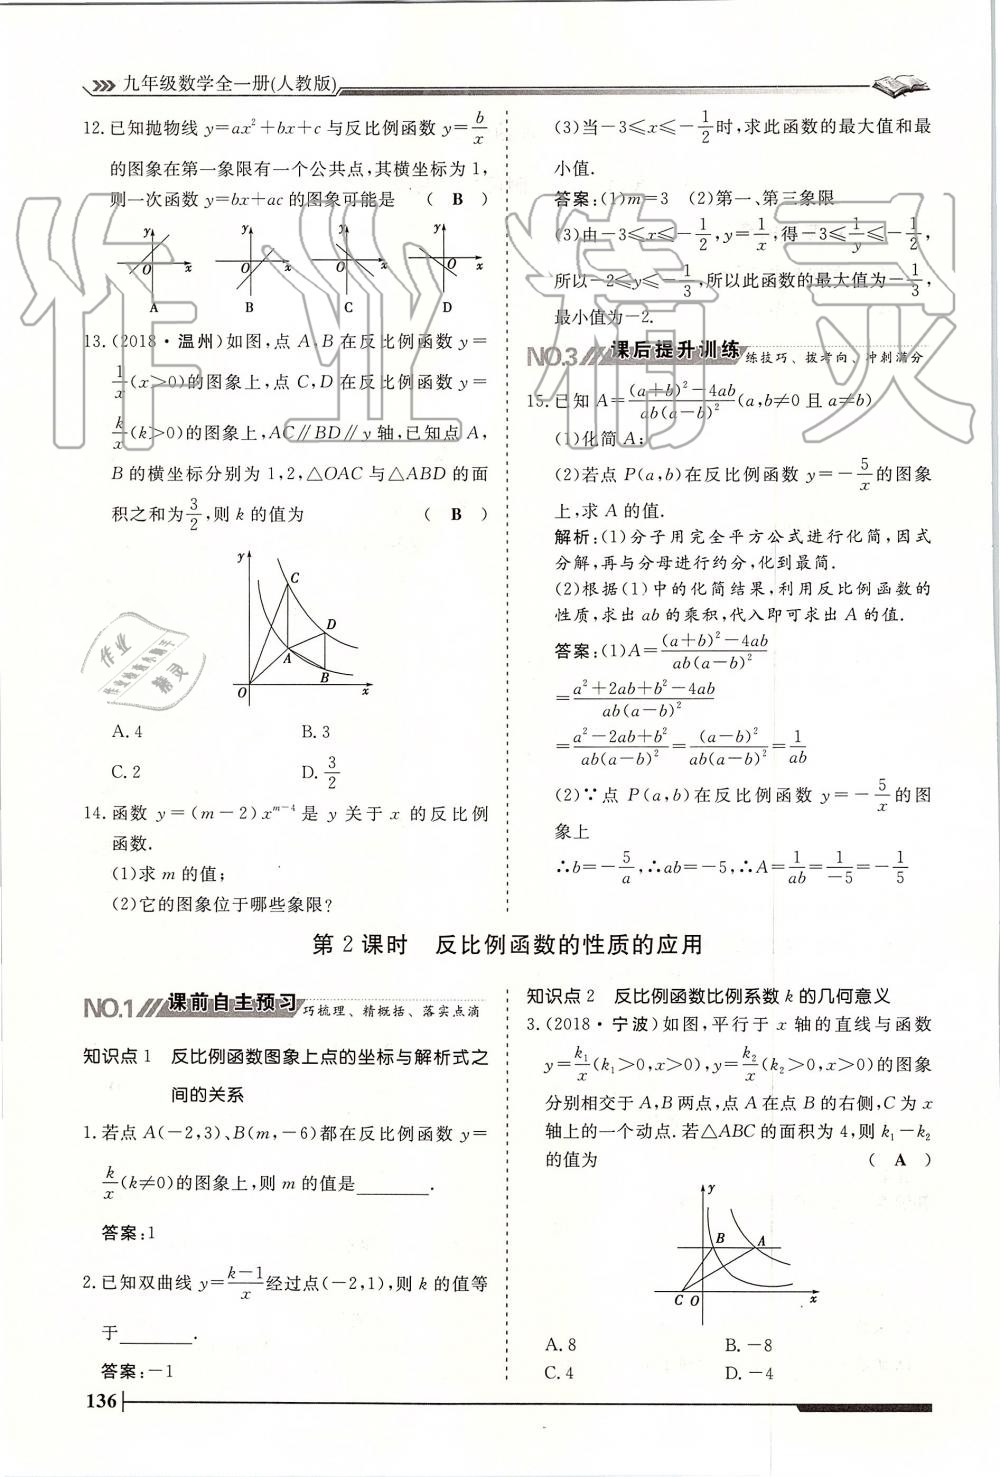 九年级数学全一册(人教版)
12.已知抛物线 y=ax²+bx+c 与反比例函数 y=b/x
的图象在第一象限有一个公共点,其横坐标为 1,
则一次函数 y=bx+ac 的图象可能是 ( B )
y x O A
y x O B
y x O C
y x O D
13.(2018·温州)如图,点 A、B 在反比例函数 y=
1/x(x>0)的图象上,点 C,D 在反比例函数 y=
k/x(k>0)的图象上,AC∥BD∥y 轴,已知点 A,
B 的横坐标分别为 1,2,△OAC 与△ABD 的面
积之和为3/2,则 k 的值为 ( B )
y C D A B O x
A. 4 B. 3
C. 2 D. 3/2
14.函数 y=(m-2)x^(m-4) 是 y 关于 x 的反比例
函数.
(1)求 m 的值;
(2)它的图象位于哪些象限?
(3)当-3≤x≤-1/2时,求此函数的最大值和最
小值.
答案:(1)m=3 (2)第一、第三象限
(3)由-3≤x≤-1/2,y=1/x,得-3≤1/y≤-1/2,
所以-2≤y≤-1/3,所以此函数的最大值为-1/3,
最小值为-2.
NO.3 课后提升训练 练技巧、拨考向、冲刺满分
15.已知 A=((a+b)²-4ab)/(ab(a-b)²)(a,b≠0 且 a≠b)
(1)化简 A;
(2)若点 P(a,b)在反比例函数 y=-5/x的图象
上,求 A 的值.
解析:(1)分子用完全平方公式进行化简,因式
分解,再与分母进行约分,化到最简.
(2)根据(1)中的化简结果,利用反比例函数的
性质,求出 ab 的乘积,代入即可求出 A 的值.
答案:(1)A=((a+b)²-4ab)/(ab(a-b)²)
=(a²+2ab+b²-4ab)/(ab(a-b)²)
=(a²-2ab+b²)/(ab(a-b)²)=(a-b)²/(ab(a-b)²)=1/ab
(2)∵点 P(a,b)在反比例函数 y=-5/x的图
象上
∴b=-5/a,∴ab=-5,∴A=1/ab=1/-5=-1/5
第 2 课时 反比例函数的性质的应用
NO.1 课前自主预习 巧梳理、精概括、落实点滴
知识点 1 反比例函数图象上点的坐标与解析式之
间的关系
1.若点 A(-2,3)、B(m,-6)都在反比例函数 y=
k/x(k≠0)的图象上,则 m 的值是________.
答案:1
2.已知双曲线 y=(k-1)/x经过点(-2,1),则 k 的值等
于________.
答案:-1
知识点 2 反比例函数比例系数 k 的几何意义
3.(2018·宁波)如图,平行于 x 轴的直线与函数
y=k₁/x(k₁>0,x>0),y=k₂/x(k₂>0,x>0)的图象
分别相交于 A,B 两点,点 A 在点 B 的右侧,C 为 x
轴上的一个动点.若△ABC 的面积为 4,则 k₁-k₂
的值为 ( A )
y B A C O x
A. 8 B. -8
C. 4 D. -4
136
作业精灵
作业
作业检查小助手
精灵